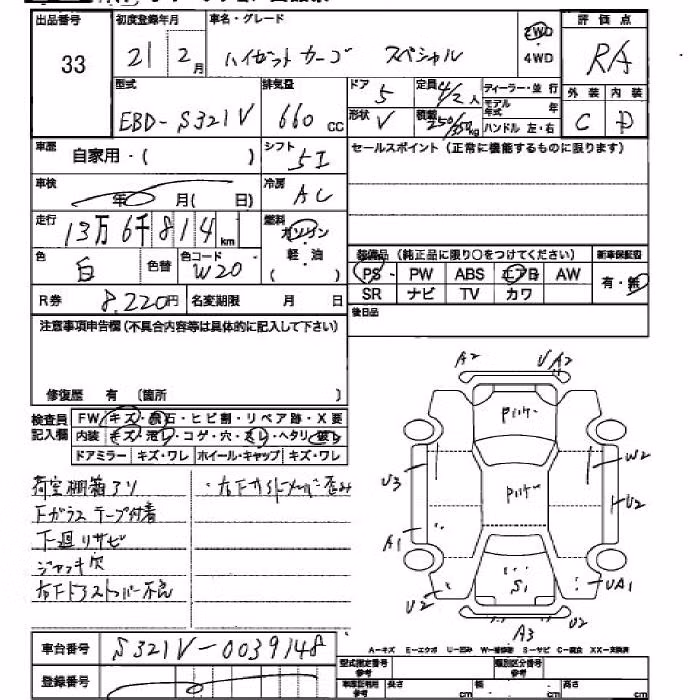 出品番号 初度登録年月 車名・グレード 評価点
33 21 2月 ハイゼットカーゴ スペシャル 2WD ・ 4WD RA
型式 排気量 ドア 定員 ディーラー・並行 外装 内装
EBD-S321V 660cc 5 4/2人 モデル年式 年 C D
形状 V 積載 250/350kg ハンドル 左・右
車歴 自家用・( ) シフト 5I セールスポイント(正常に機能するものに限ります)
車検 年 月( 日) 冷房 AC
走行 13万6千814km 燃料 ガソリン・軽・油 ( )
色 白 色替 色コード W20
装備品(純正品に限り○をつけてください) 新車保証書
PS PW ABS エアB AW 有・無
SR ナビ TV カワ
R券 8,220円 名変期限 月 日
後日品
注意事項申告欄(不具合内容等は具体的に記入して下さい)
修復歴 有 (箇所 )
検査員記入欄 FW キズ・飛石・ヒビ割・リペア跡・X要
内装 キズ・汚レ・コゲ・穴・スレ・ヘタリ・破レ
ドアミラー キズ・ワレ ホイール・キャップ キズ・ワレ
荷室棚箱アリ
Fガラス テープ付着
下廻りサビ
ジャッキ欠
右Fドアストッパー不良
・右Fサイドメンバー歪み
A2 UA2
U3 W2
U2
A1
UA1
U2 S1 U2
A3
A-キズ E-エクボ U-凹み W-補修跡 S-サビ C-腐食 XX-交換済
車台番号 S321V-0039148
登録番号
型式指定番号 参考 類別区分番号 参考
長さ cm 幅 cm 高さ cm